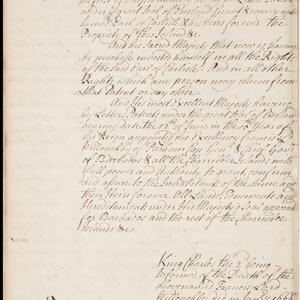 under the great Seal of England Grant & convey unto
James Earl of Carlisle & his heirs for ever the
Property of this Island &c
And his Sacred Majesty that now is having
by purchase invested himself in all the Rights
of the said Earl of Carlisle And in all other
Rights which any person may claim from
that Patent or any other
And his most Excellent Majesty having
by Letters Patents under the great Seal of England
bearing date the 12th of June in the 15 Year of
his Reign appointed
Willoughby of Parham Captain & Chief Gov:r
of Barbados & all the Charribee Islands with
full power and Authority to grant, confirm
and assure to the Inhabitants of the same and
their Heirs for ever all Lands, Tenements and
Hereditaments under his Majesty's Seal appointed
for Barbados and the rest of the Charribee
Islands &c
King Charles the 2d being
informed of the Death of the
Governor Francis Lord
Willoughby did in